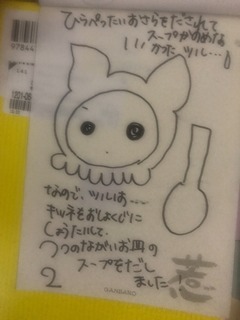 ひらぺったいおさらをだされて
スープがのめな
かった ツル…
なので、ツルは…
キツネをおしょくじに
しょうたいして、
つつのながいお皿の
スープをだし
ました!
2
惹